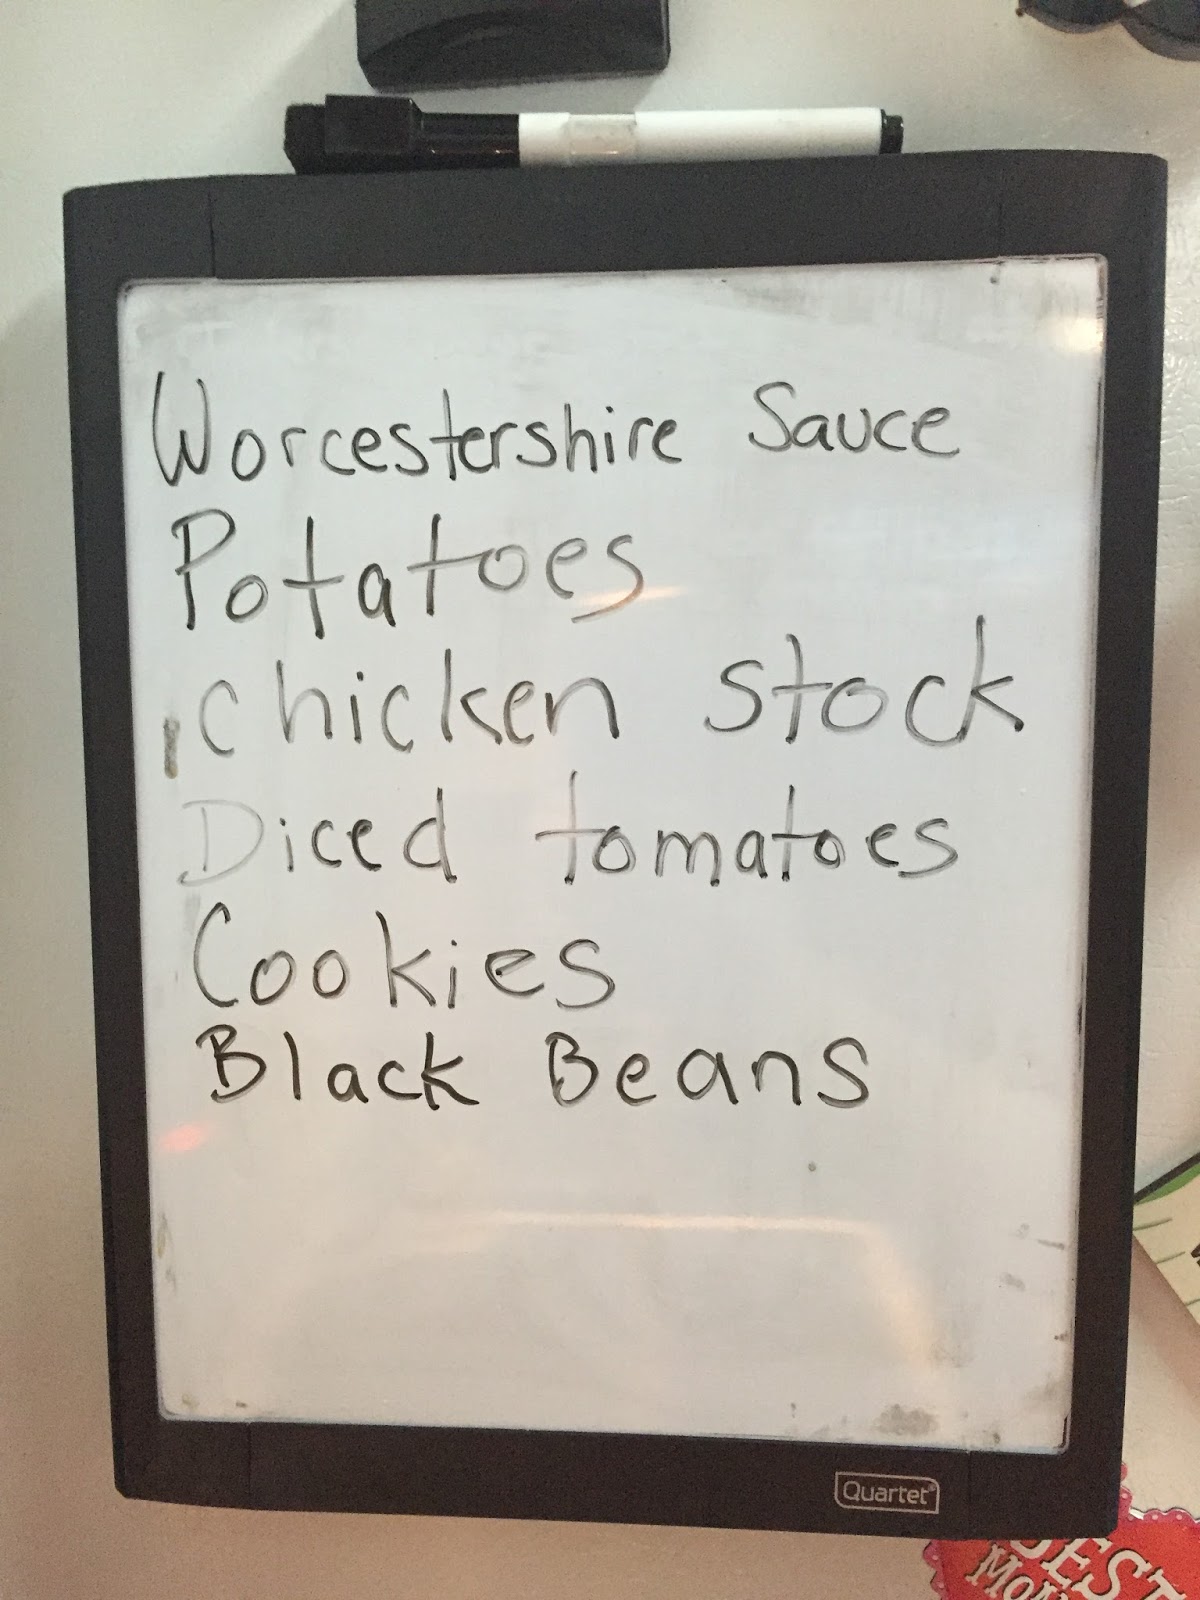 Worcestershire Sauce
Potatoes
chicken stock
Diced tomatoes
Cookies
Black Beans
Quartet®
BEST